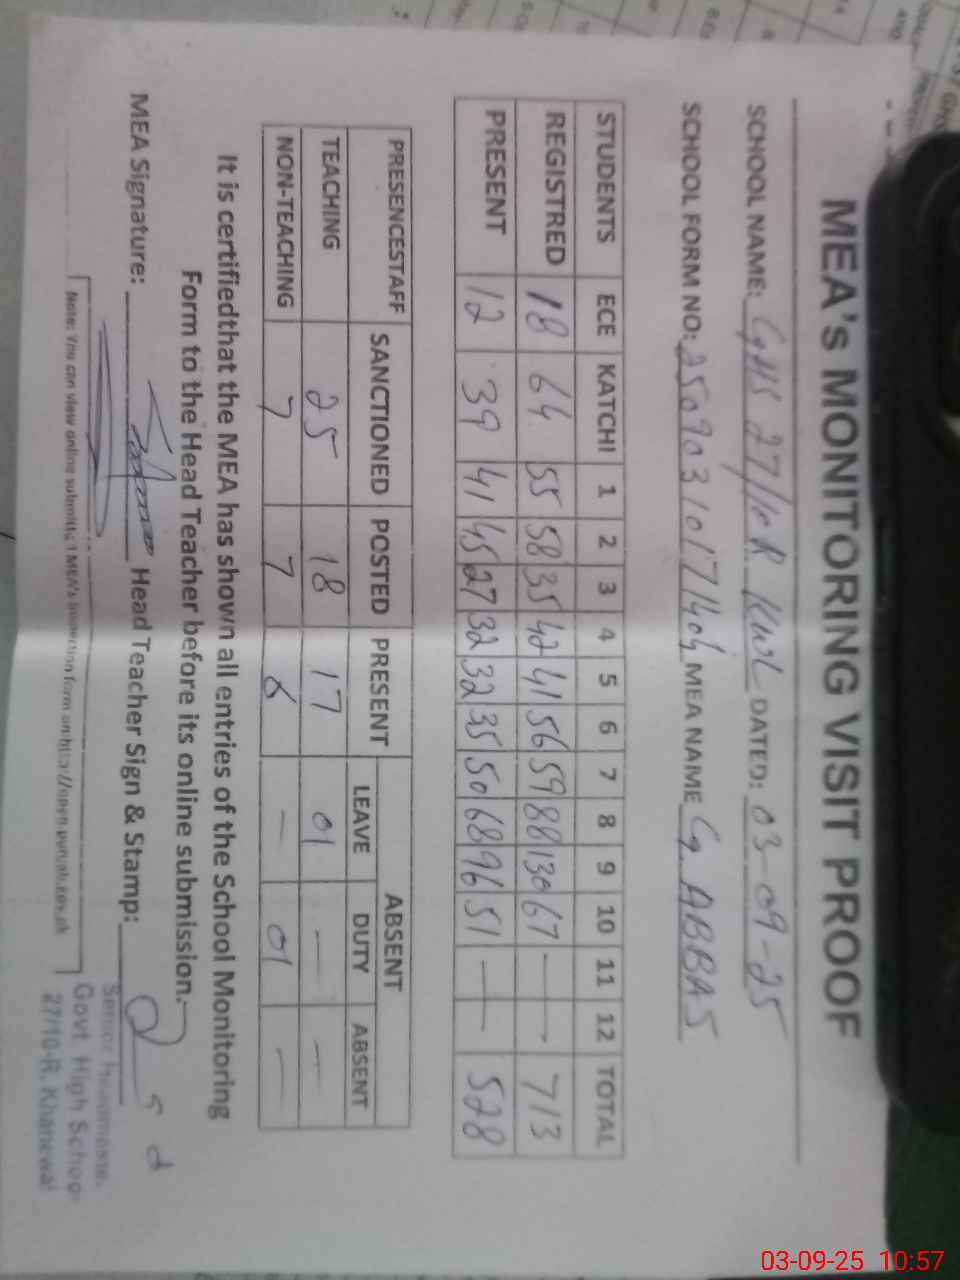 MEA's MONITORING VISIT PROOF
SCHOOL NAME: GHS 27/10R KWL DATED: 03-09-25
SCHOOL FORM NO: 25090310171404 MEA NAME G. ABBAS
STUDENTS ECE KATCHI 1 2 3 4 5 6 7 8 9 10 11 12 TOTAL
REGISTRED 18 64 55 58 35 42 41 56 59 88 130 67 — — 713
PRESENT 12 39 41 45 27 32 32 35 50 68 96 51 — — 528
PRESENCESTAFF SANCTIONED POSTED PRESENT ABSENT
LEAVE DUTY ABSENT
TEACHING 25 18 17 01 — —
NON-TEACHING 7 7 6 — 01 —
It is certifiedthat the MEA has shown all entries of the School Monitoring
Form to the Head Teacher before its online submission.
MEA Signature: Head Teacher Sign & Stamp:
Note: You can view online submitted MEA's Inspection form on http://open.punjab.gov.pk
Senior Headmaster
Govt. High School
27/10-R, Khanewal
03-09-25 10:57